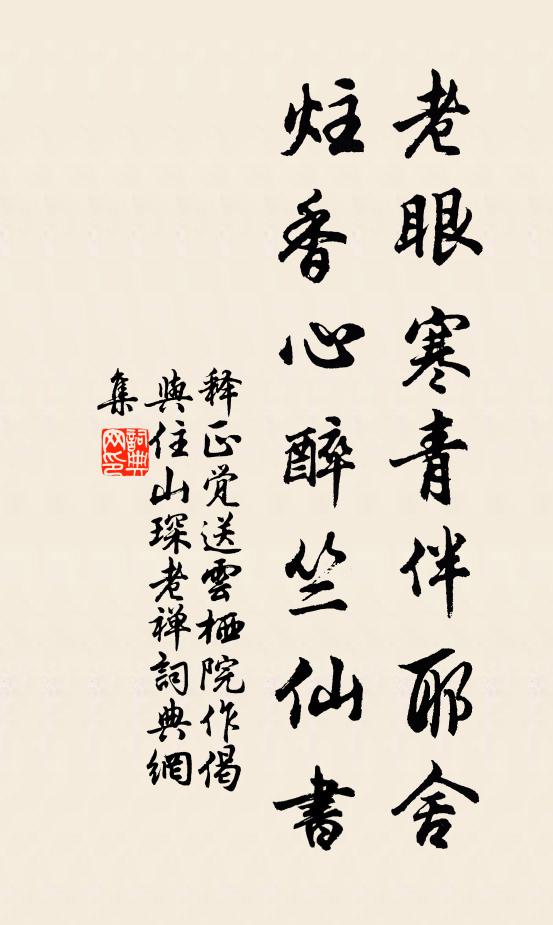 老眼寒青伴耶舍
炷香心醉竺仙書
释正觉送雲栖院作偈
與住山琛老禅詞典網
集
詞典網印